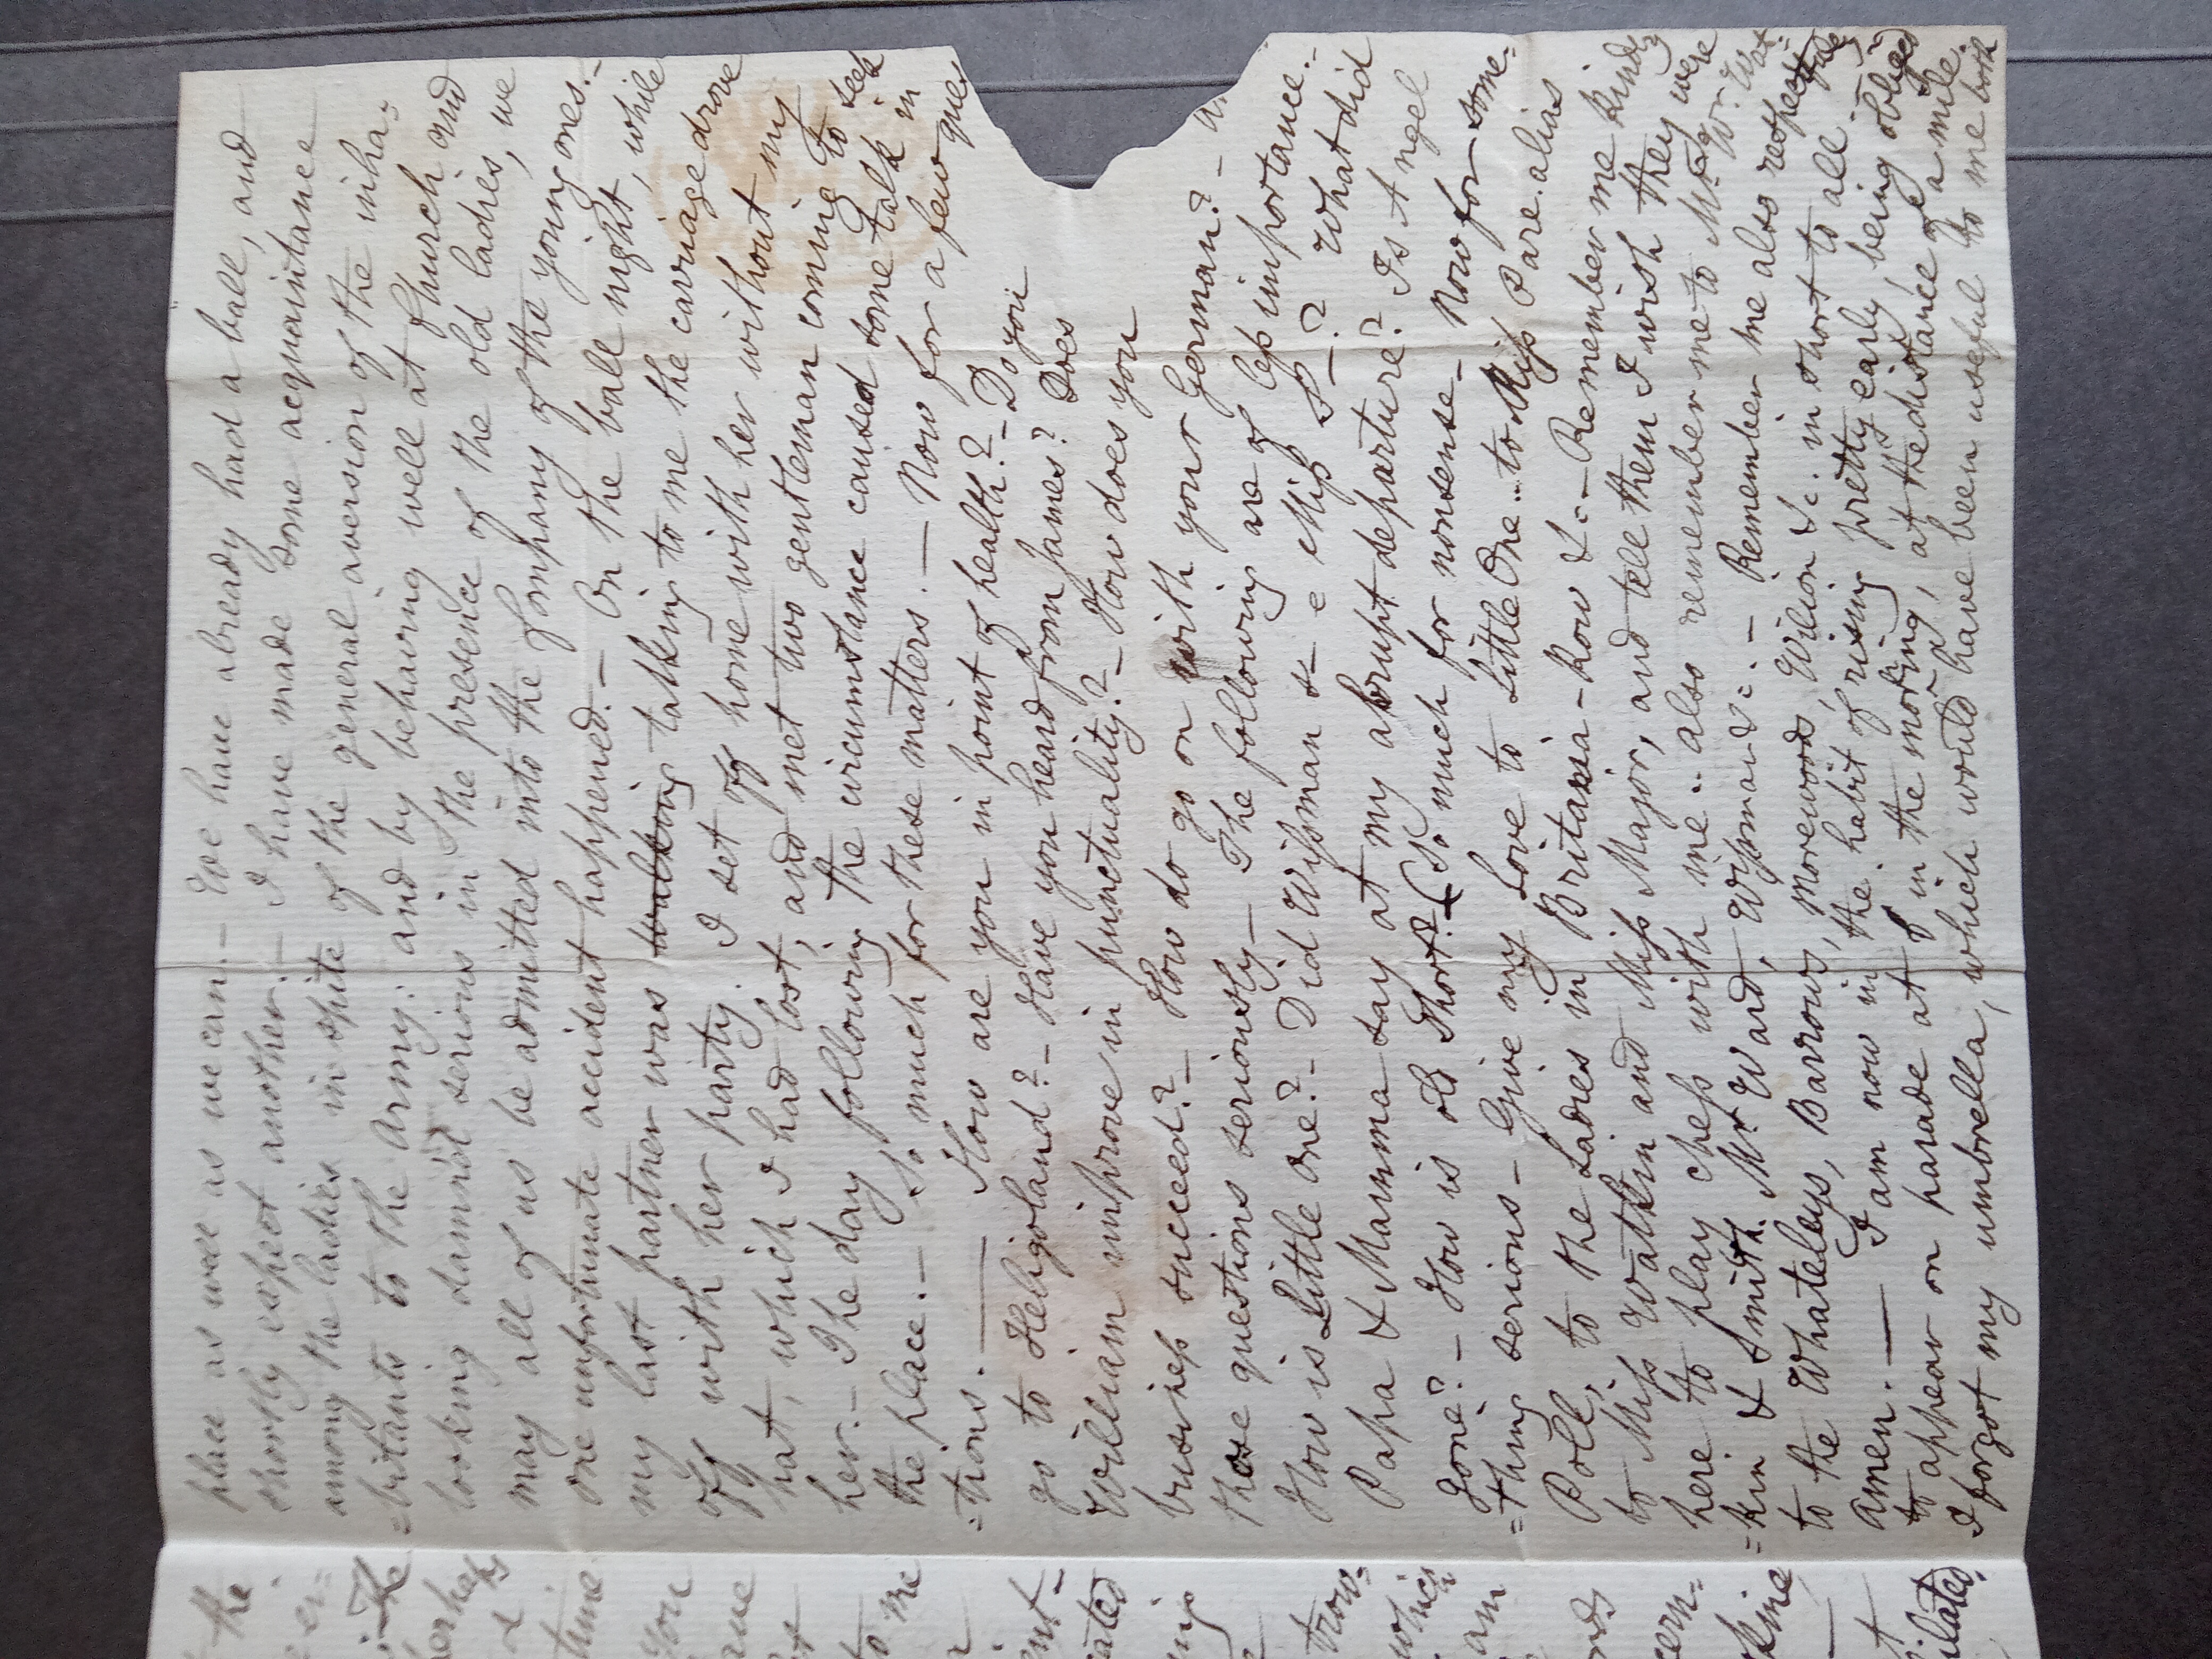 place as well as we can. – We have already had a ball, and
shortly expect another. – I have made some acquaintance
among the ladies in spite of the general aversion of the inha=
=bitants to the Army: and by behaving well at Church and
looking damn'd serious in the presence of the old ladies, we
may all of us be admitted into the Company of the young ones. –
one unfortunate accident happened. – On the ball night, while
my last partner was walking talking to me the carriage drove
off with her party. I set off home with her without my
hat, which I had lost, and met two gentleman coming to seek
her. – The day following the circumstance caused some talk in
the place. – So much for these matters. – Now for a few ques
=tions. — How are you in point of health? – Do you
go to Heligoland? – Have you heard from James? Does
William improve in punctuality? – How does you
business succeed? – How do go on with your German? –
These questions seriously – The following are of less importance. –
How is Little One? – Did Wissman & – e Miss S –? What did
Papa & Mamma say at my abrupt departure? Is Angel
gone? – How is old Short? (So much for nonsense – Now for some=
=thing serious – Give my Love to Little One.. to Miss Pare. alias
Poll, to the Ladies in Britannia-Row &c – Remember me kindly
to Miss Watkin and Miss Major, and tell them I wish they were
here to play chess with me.. also remember me to Mr & Mr. Wat=
=kin & Smith. Mr Ward, Wissman &c. – Remember me also respectfully
to the Whateleys, Barrows, Morewoods, Wilson &c. in short to all.
Amen. — I am now in the habit of rising pretty early, being obliged
to appear on parade at 8 in the morning, at the distance of a mile.
I forgot my umbrella, which would have been useful to me both
the
er=
The
&
time
you
to me
ent=
cated
trow=
which
am
cern=
ilated